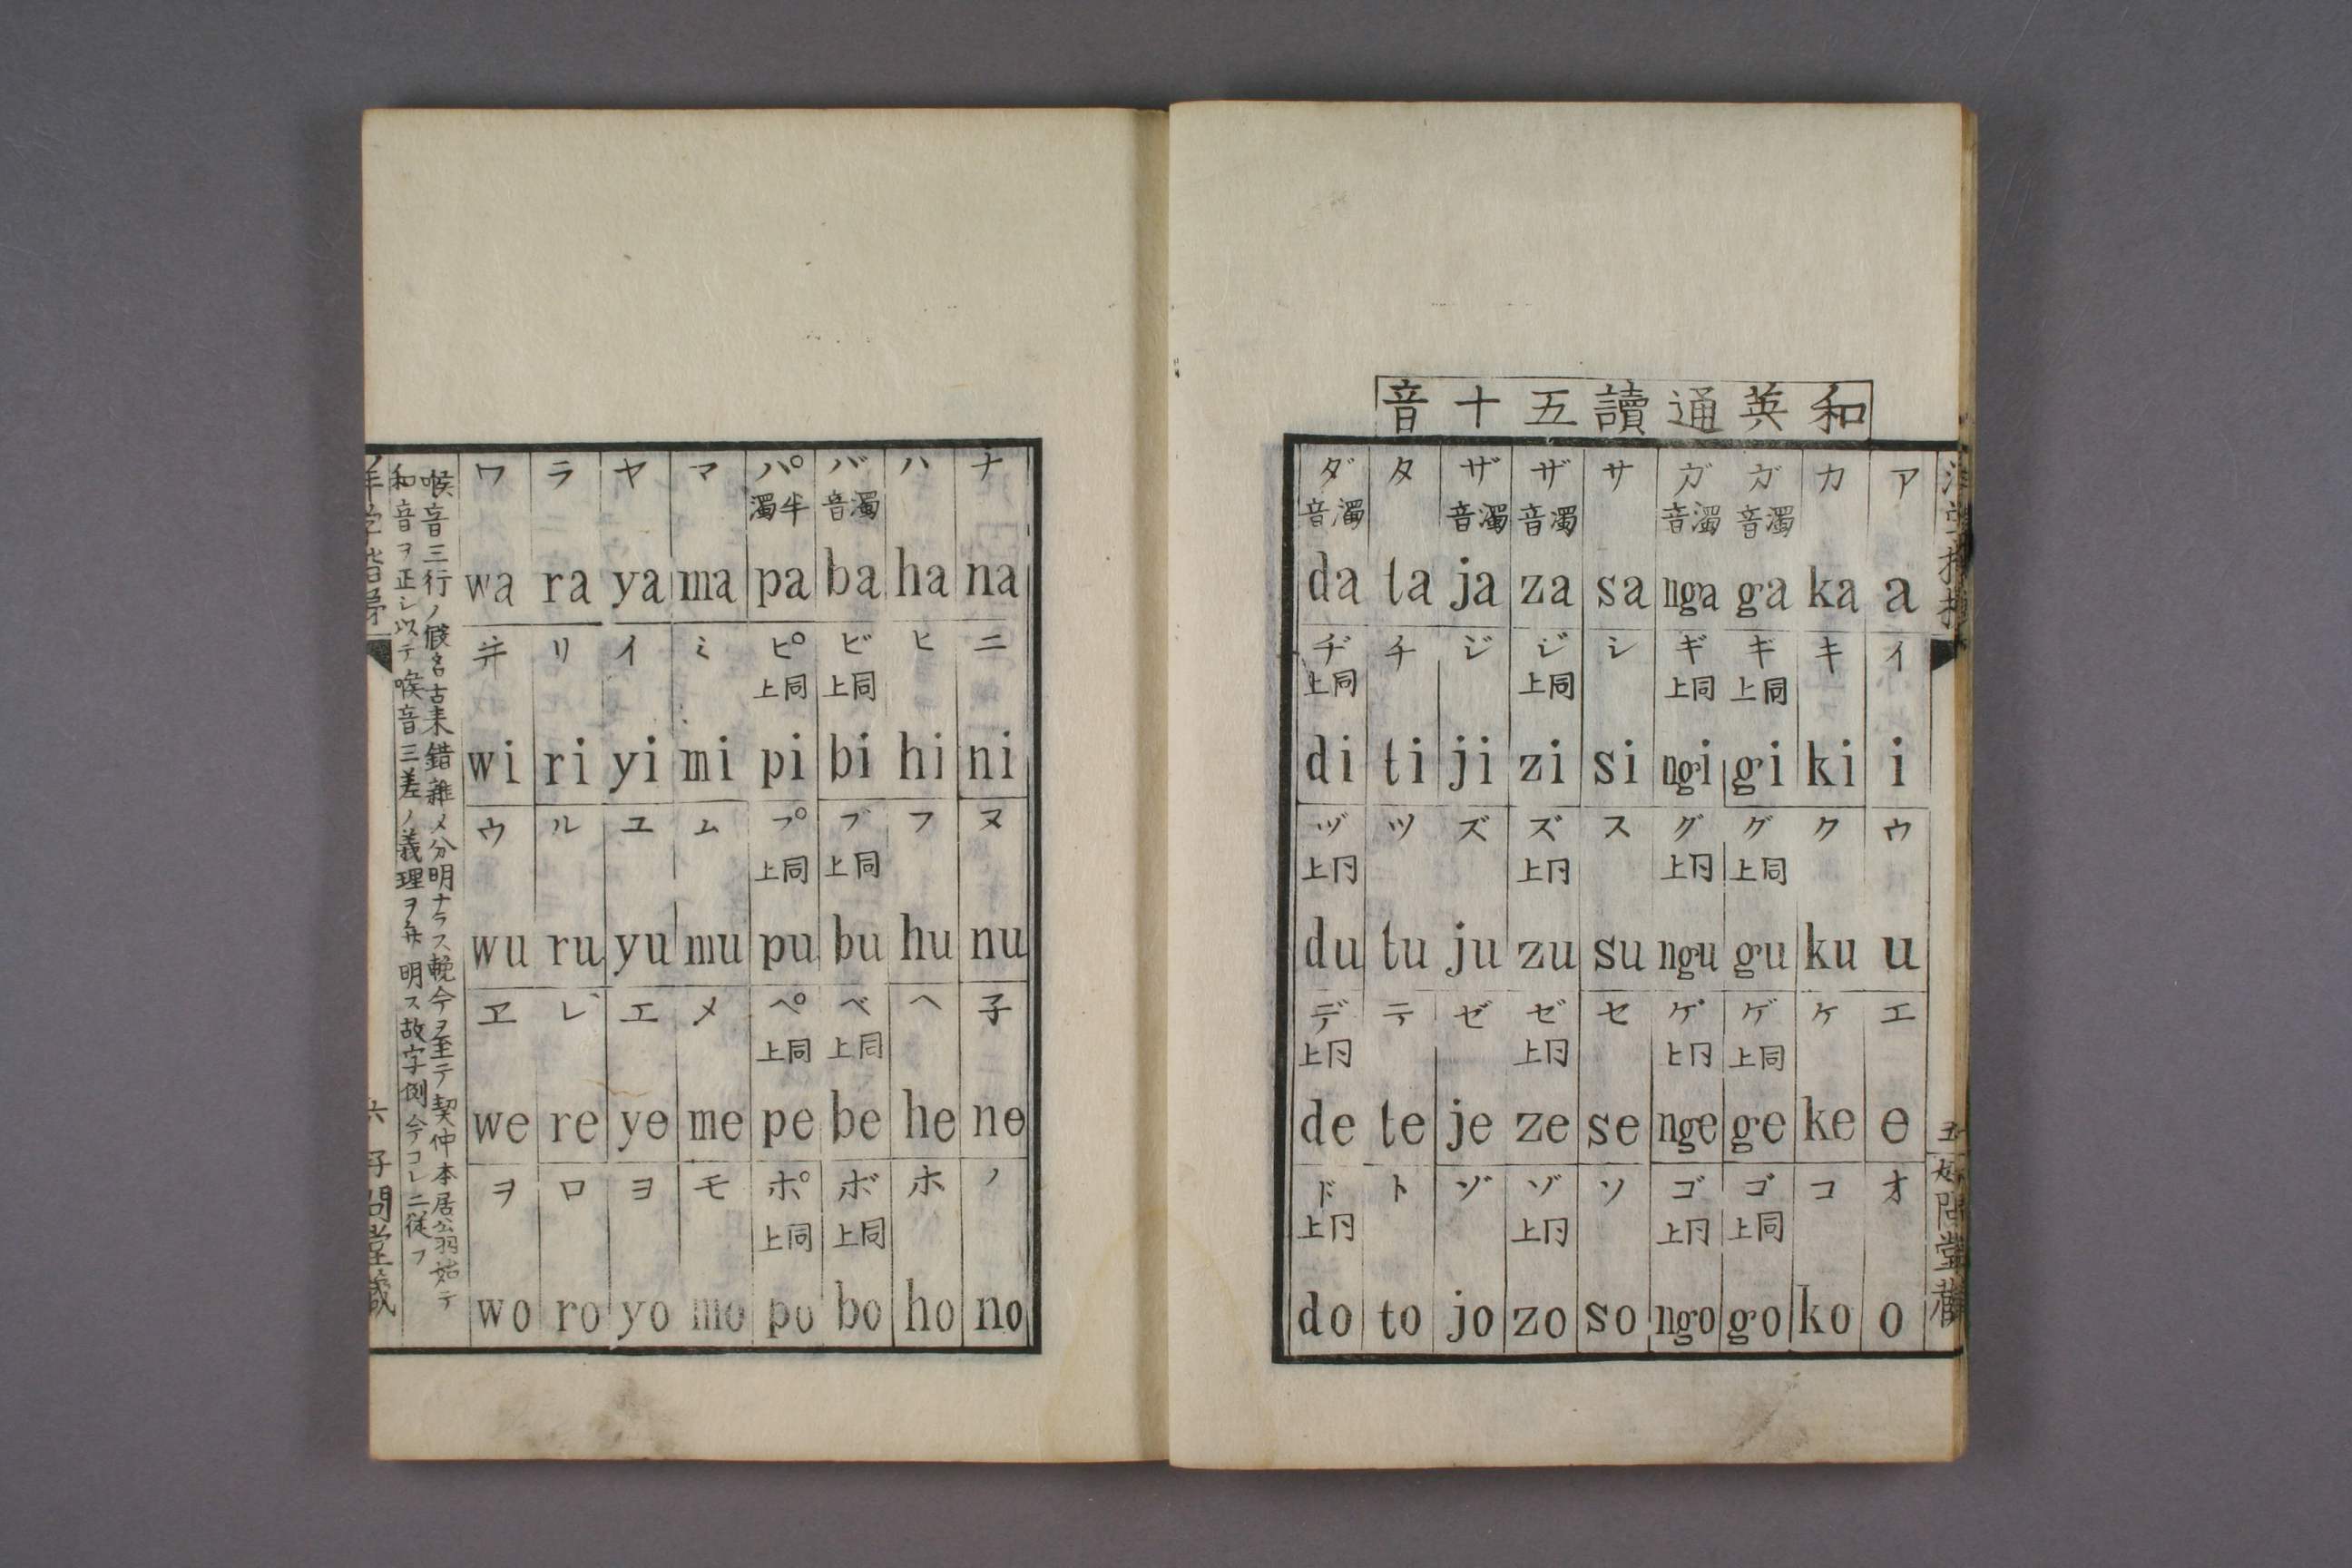 和英通讀五十音
ア カ ガ ガ サ ザ ザ タ ダ
濁音 濁音 濁音 濁音 濁音
a ka ga nga sa za ja ta da
イ キ ギ ギ シ ジ ジ チ ヂ
同上 同上 同上 同上
i ki gi ngi si zi ji ti di
ウ ク グ グ ス ズ ズ ツ ヅ
同上 同上 同上 同上
u ku gu ngu su zu ju tu du
エ ケ ゲ ゲ セ ゼ ゼ テ デ
同上 同上 同上 同上
e ke ge nge se ze je te de
オ コ ゴ ゴ ソ ゾ ゾ ト ド
同上 同上 同上 同上
o ko go ngo so zo jo to do
五
好問堂藏
ナ ハ バ パ マ ヤ ラ ワ
濁音 半濁
na ha ba pa ma ya ra wa
ニ ヒ ビ ピ ミ イ リ 井
同上 同上
ni hi bi pi mi yi ri wi
ヌ フ ブ プ ム ユ ル ウ
同上 同上
nu hu bu pu mu yu ru wu
子 ヘ ベ ペ メ エ レ ヱ
同上 同上
ne he be pe me ye re we
ノ ホ ボ ポ モ ヨ ロ ヲ
同上 同上
no ho bo po mo yo ro wo
喉音三行ノ假名古来錯雑メ分明ナラス輓今ヌ至テ契仲本居公羽始テ
和音ヲ正シ以テ喉音三差ノ義理ヲ弁明ス故字例今コレニ從フ
六
好問堂藏